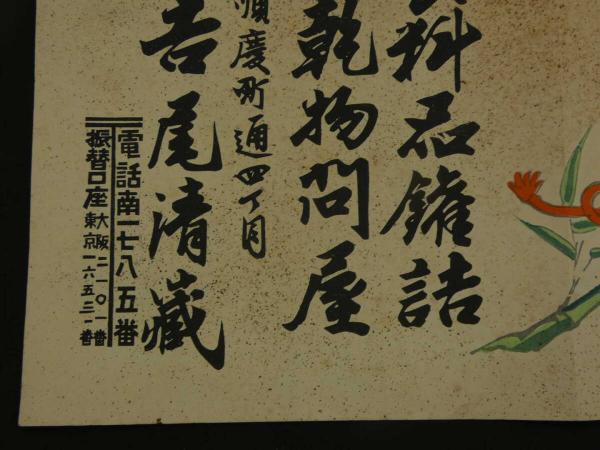 料品罐詰
乾物問屋
順慶町通四丁目
吉尾清藏
電話南一七八五番
振替口座大阪二一〇一番
東京一六五三一番